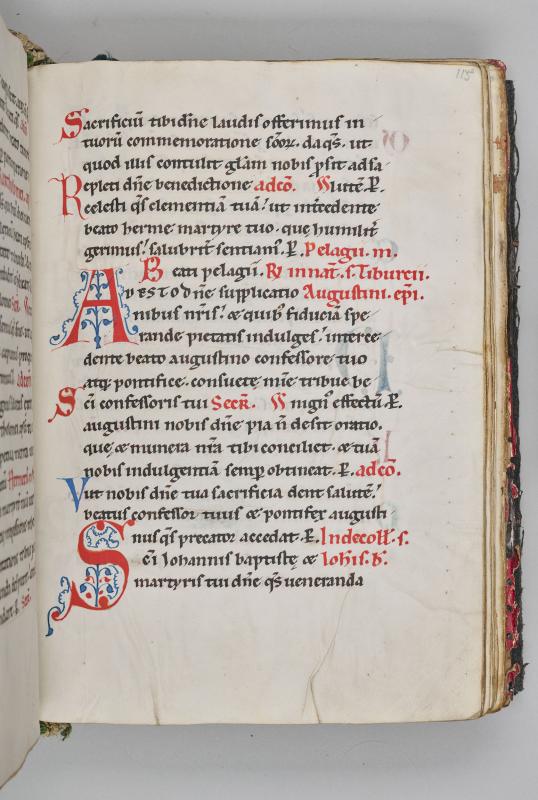 115
Sacrificiū tibi dn̄e laudis offerimus in
tuorū commemoratione s̄c̄or̄. da q̄s. ut
quod illis contulit gl̄am nobis p̱sit ad sa
Repleti dn̄e benedictione ad cō. lutē. P̱.
celesti q̄s clementiā tuā. ut intcedente
beato herme martyre tuo. quę humilit̄
gerimus. salubrit̄ sentiam᷒. P̱. Pelagii. m.
Beati pelagii. innat̄. s. Tiburcii.
ADESTO dn̄e supplicatio Augustini. ep̄i.
nibus nr̄is. & quib᷒ fiduciā spe
rande pietatis indulges. interce
dente beato augustino confessore tuo
atq̱ pontifice. consuetę mīe tribue be
Sc̄i confessoris tui Secr̄. nignus effectū. P̱.
augustini nobis dn̄e pia n̄ desit oratio.
que & munera nr̄a tibi conciliet. & tuā
nobis indulgentiā semp̱ obtineat. P̱. ad cō.
Vt nobis dn̄e tua sacrificia dent salutē.
beatus confessor tuus & pontifex augusti
nus q̄s precator accedat. P̱. In decoll̄. s.
Sc̄i Iohannis baptistę & Ioh̄is. b̄.
martyris tui dn̄e q̄s ueneranda